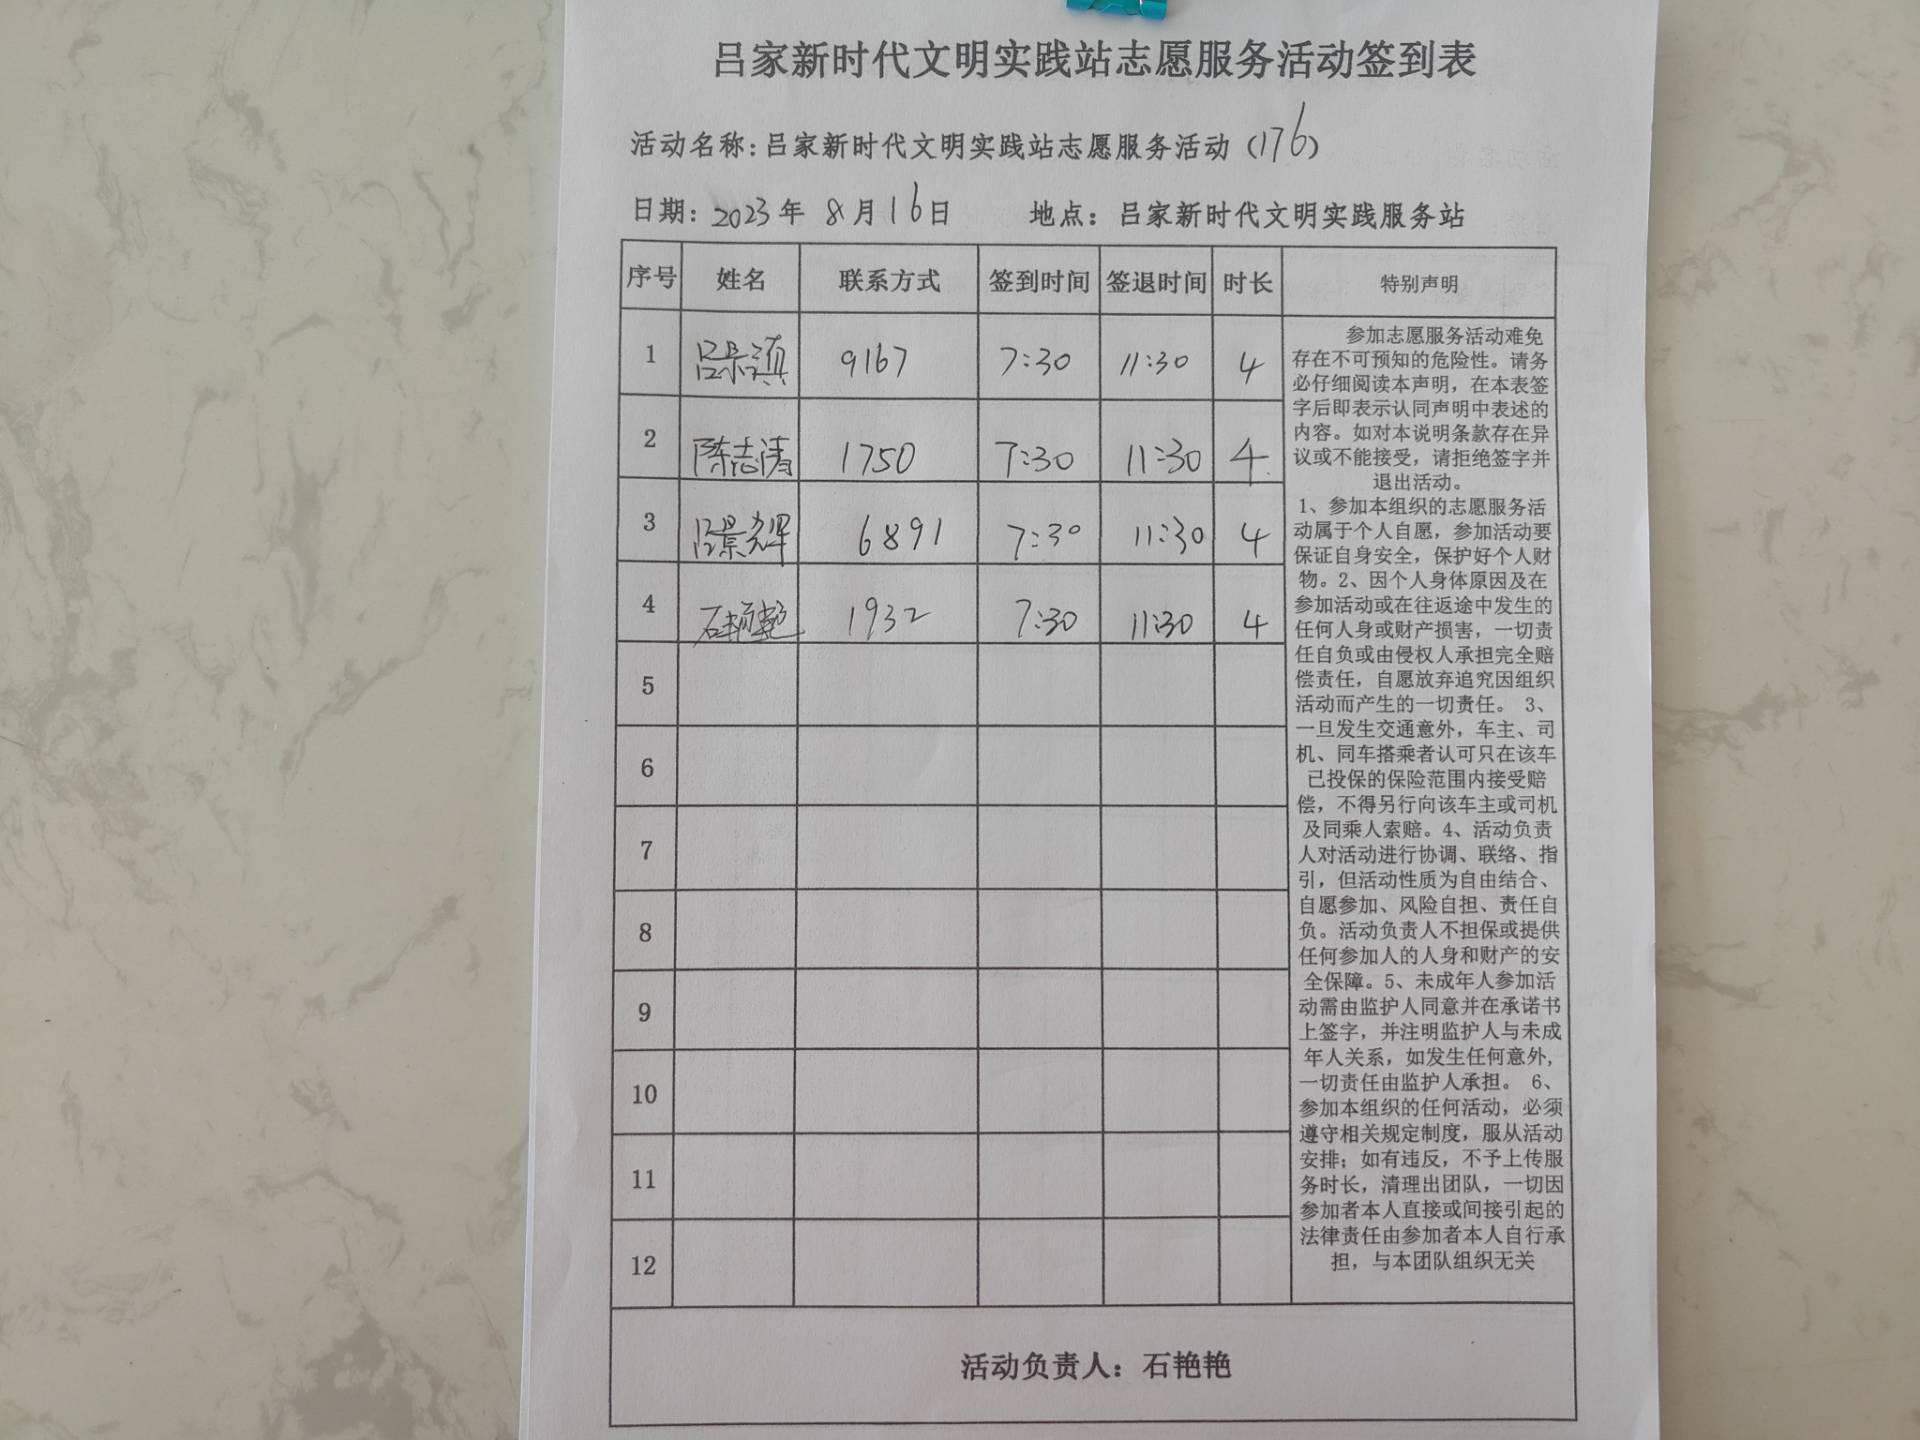 吕家新时代文明实践站志愿服务活动签到表
活动名称:吕家新时代文明实践站志愿服务活动（176）
日期：2023年 8月16日 地点：吕家新时代文明实践服务站
序号 姓名 联系方式 签到时间 签退时间 时长 特别声明
1 吕景滇 9167 7:30 11:30 4
2 陈志涛 1750 7:30 11:30 4
3 吕景辉 6891 7:30 11:30 4
4 石艳艳 1932 7:30 11:30 4
5
6
7
8
9
10
11
12
参加志愿服务活动难免
存在不可预知的危险性。请务
必仔细阅读本声明，在本表签
字后即表示认同声明中表述的
内容。如对本说明条款存在异
议或不能接受，请拒绝签字并
退出活动。
1、参加本组织的志愿服务活
动属于个人自愿，参加活动要
保证自身安全，保护好个人财
物。2、因个人身体原因及在
参加活动或在往返途中发生的
任何人身或财产损害，一切责
任自负或由侵权人承担完全赔
偿责任，自愿放弃追究因组织
活动而产生的一切责任。 3、
一旦发生交通意外，车主、司
机、同车搭乘者认可只在该车
已投保的保险范围内接受赔
偿，不得另行向该车主或司机
及同乘人索赔。4、活动负责
人对活动进行协调、联络、指
引，但活动性质为自由结合、
自愿参加、风险自担、责任自
负。活动负责人不担保或提供
任何参加人的人身和财产的安
全保障。5、未成年人参加活
动需由监护人同意并在承诺书
上签字，并注明监护人与未成
年人关系，如发生任何意外，
一切责任由监护人承担。 6、
参加本组织的任何活动，必须
遵守相关规定制度，服从活动
安排；如有违反，不予上传服
务时长，清理出团队，一切因
参加者本人直接或间接引起的
法律责任由参加者本人自行承
担，与本团队组织无关
活动负责人：石艳艳